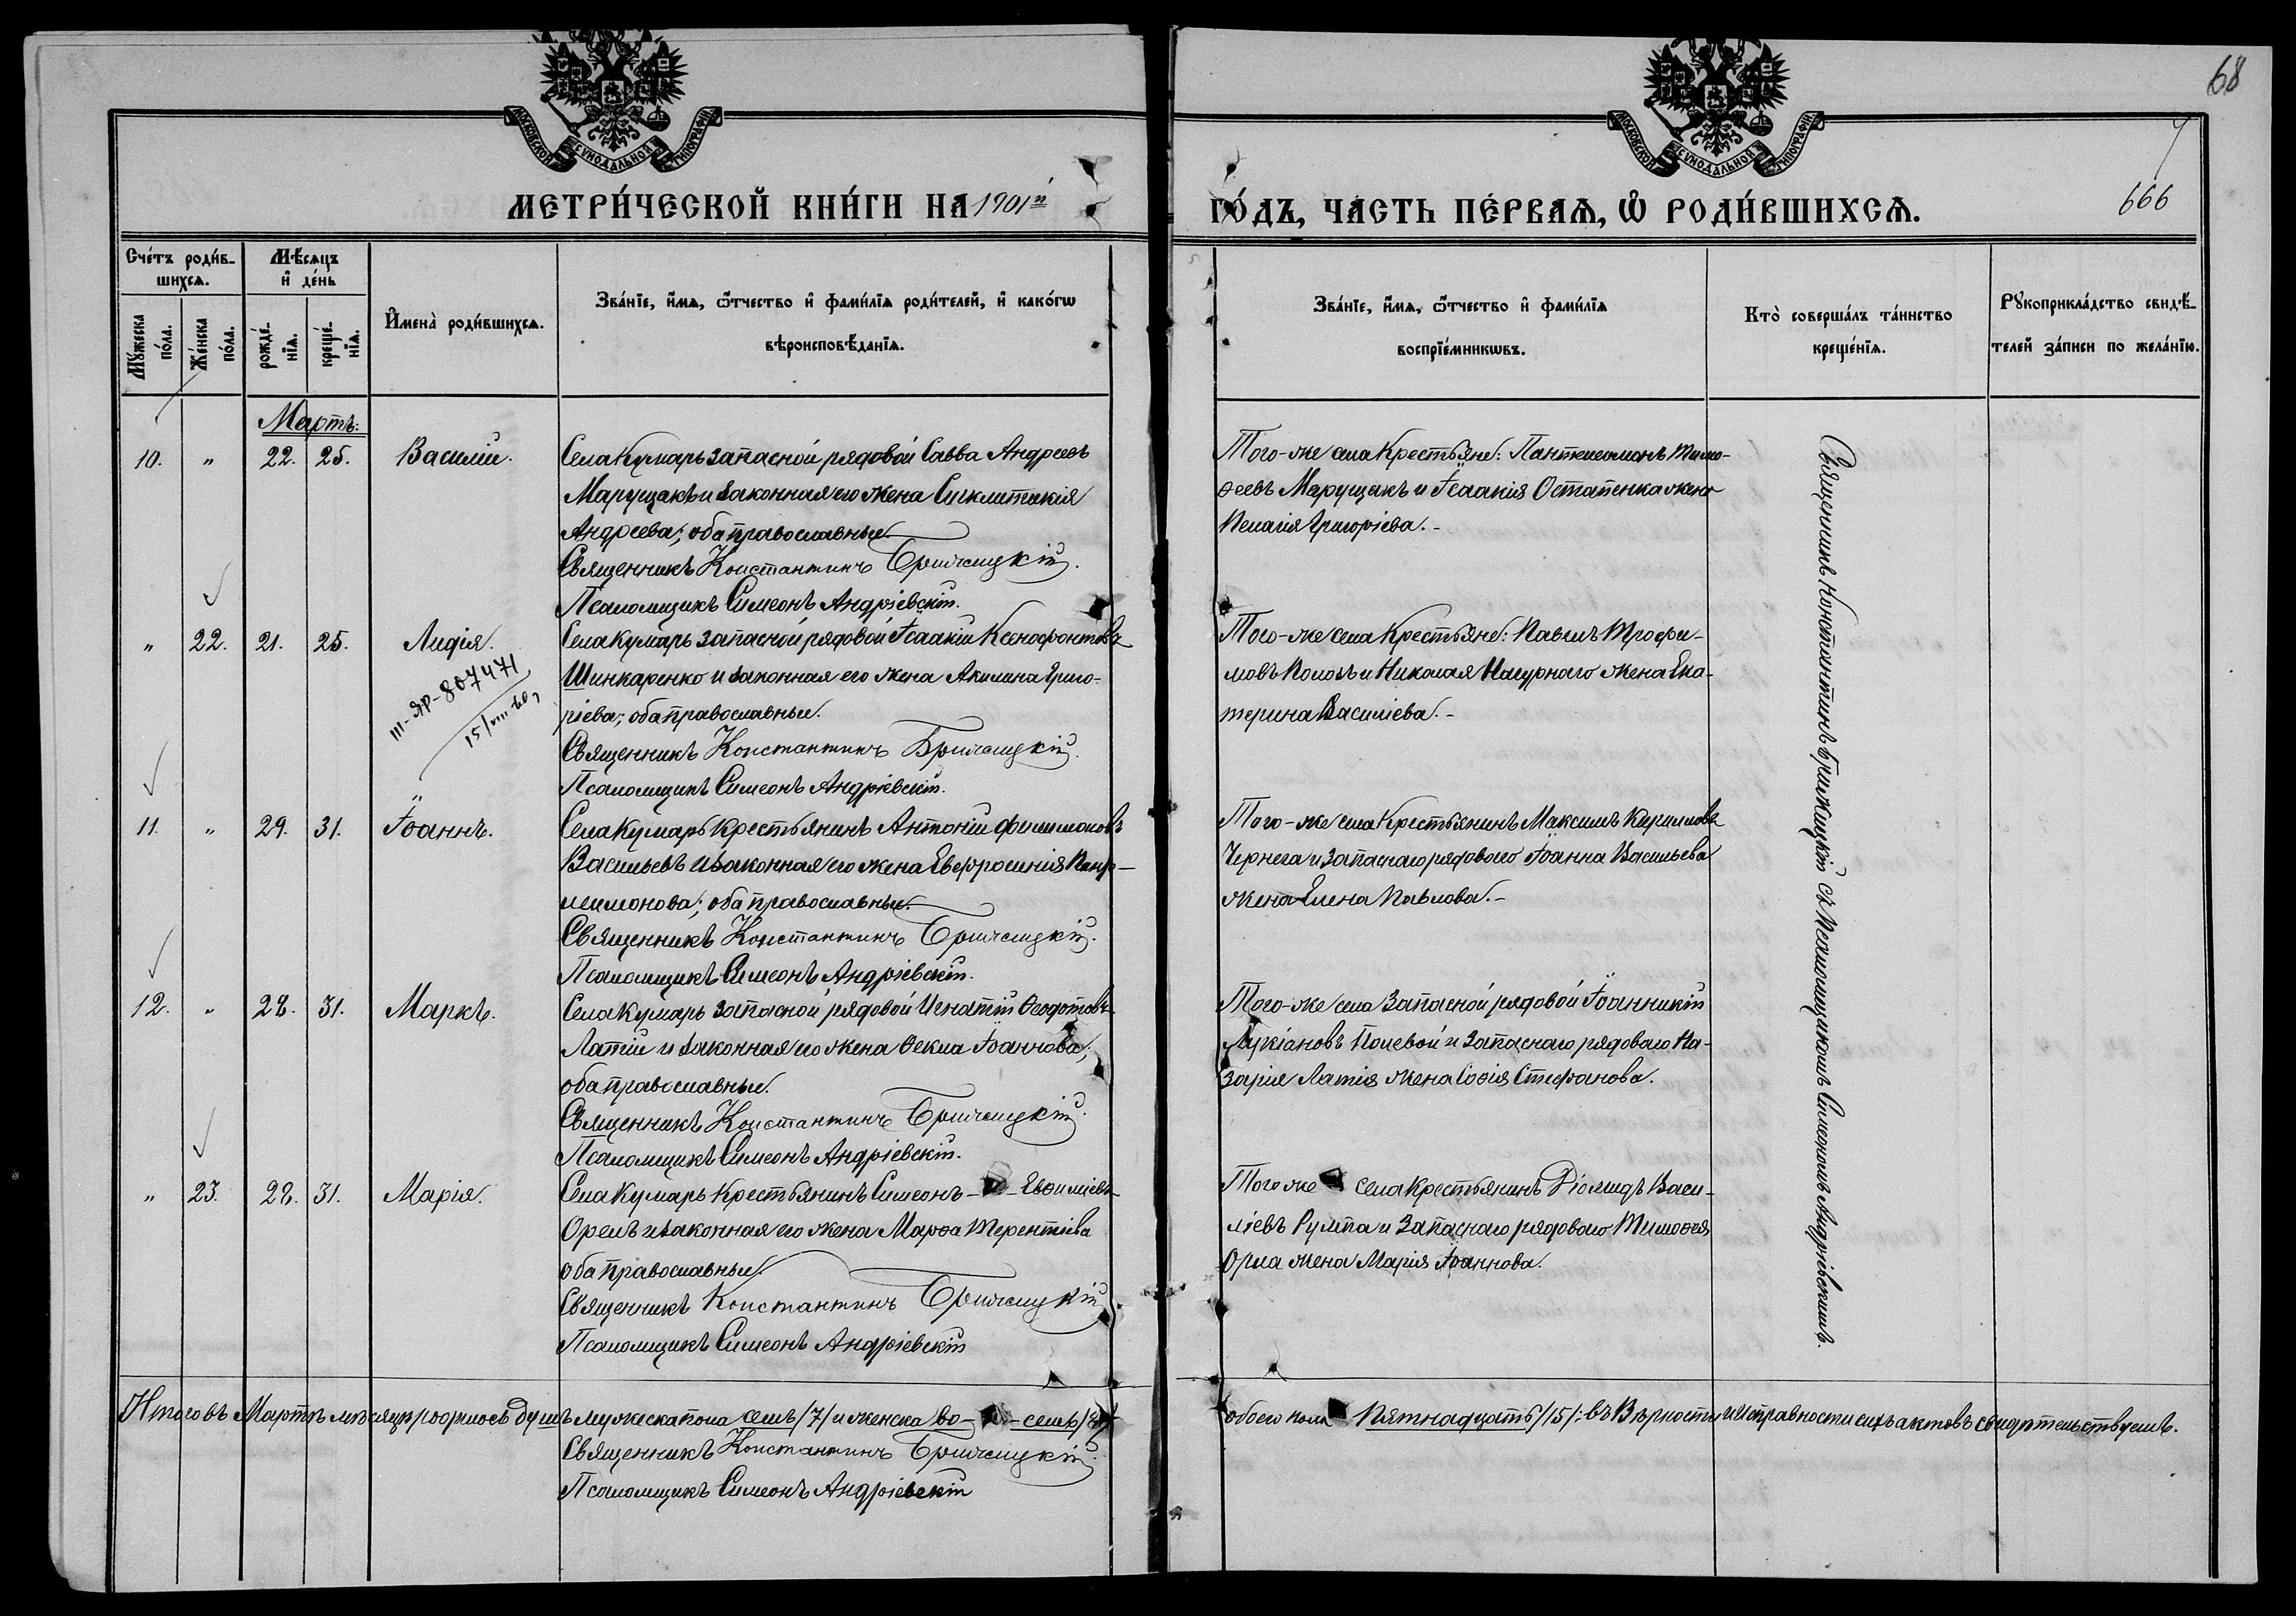 68
МОСКОВСКОЙ СѴНОДАЛЬНОЙ ТИПОГРАФІИ
МОСКОВСКОЙ СѴНОДАЛЬНОЙ ТИПОГРАФІИ
МЕТРИ́ЧЕСКОЙ КНИ́ГИ НА 1901й
ГО́ДЪ, ЧА́СТЬ ПЕ́РВАѦ, Ѿ РОДИ́ВШИХСѦ.
666
Счéтъ роди́в-
шихсѧ.
Мꙋ́жеска
по́ла.
Же́нска
по́ла.
Мѣ́сѧцъ
и҆ де́нь
рожде́-
нїѧ.
креще́-
нїѧ.
И҆мена̀ роди́вшихсѧ.
Зва́нїе, и҆́мѧ, ѻ҆́тчество и҆ фами́лїѧ роди́телей, и҆ како́гѡ
вѣроисповѣ́данїѧ.
Зва́нїе, и҆́мѧ, ѻ҆́тчество и҆ фами́лїѧ
воспрїе́мникѡвъ.
Кто̀ соверша́лъ та́инство
креще́нїѧ.
Рꙋкоприкла́дство свидѣ́-
телей за́писи по жела́нїю.
Мартъ:
10. " 22. 25. Василій.
Села Кумарь запасной рядовой Савва Андреевъ
Марущакъ и законная его жена Сигклитикія
Андреева; оба православные.
Священникъ Константинъ Брижицкій.
Псаломщикъ Симеонъ Андріевскій.
Того-же села Крестьяне: Пантелеимонъ Тимо-
ѳеевъ Марущакъ и Ісаакія Остапенка жена
Пелагія Григоріева.-
" 22. 21. 25. Лидія.
III-ЯР-807471
Села Кумарь запасной рядовой Ісаакій Ксенофонтовъ
Шинкаренко и законная его жена Акилина Григо-
ріева; оба православные.
Священникъ Константинъ Брижицкій.
Псаломщикъ Симеонъ Андріевскій.
Того-же села Крестьяне: Павелъ Трофи-
мовъ Полозъ и Николая Нагурнаго жена Ека-
терина Василіева.-
11. " 29. 31. Іоаннъ.
Села Кумарь Крестьянинъ Антоній Филимоновъ
Васильевъ и законная его жена Евфросинія Пант-
леимонова; оба православные.
Священникъ Константинъ Брижицкій.
Псаломщикъ Симеонъ Андріевскій.
Того-же села Крестьянинъ Максимъ Кирилловъ
Чернега и запаснаго рядоваго Іоанна Васильева
жена Елена Павлова.-
12. " 28. 31. Маркъ.
Села Кумарь запасной рядовой Игнатій Ѳеодотовъ
Латій и законная его жена Ѳекла Іоаннова;
оба православные.
Священникъ Константинъ Брижицкій.
Псаломщикъ Симеонъ Андріевскій.
Того-же села Запасной рядовой Іоанникій
Лукіановъ Полевой и запаснаго рядоваго На-
зарія Латія жена Софія Стефанова.
" 23. 28. 31. Марія.
Села Кумарь Крестьянинъ Симеонъ Евѳиміевъ
Орелъ и законная его жена Марѳа Терентіева
оба православные.
Священникъ Константинъ Брижицкій
Псаломщикъ Симеонъ Андріевскій
Того же села Крестьянинъ Діомидъ Васи-
ліевъ Румпа и Запаснаго рядоваго Тимоѳея
Орла жена Марія Іоаннова.
Священникъ Константинъ Брижицкій съ Псаломщикомъ Симеономъ Андріевскимъ.
Итого въ Мартѣ мѣсяцѣ родилось душъ мужеска пола семь /7/ и женска во- -семь /8/
обоего пола Пятнадцать /15/: въ Вѣрности и исправности сихъ актовъ свидѣтельствуемъ.
Священникъ Константинъ Брижицкій.
Псаломщикъ Симеонъ Андріевскій